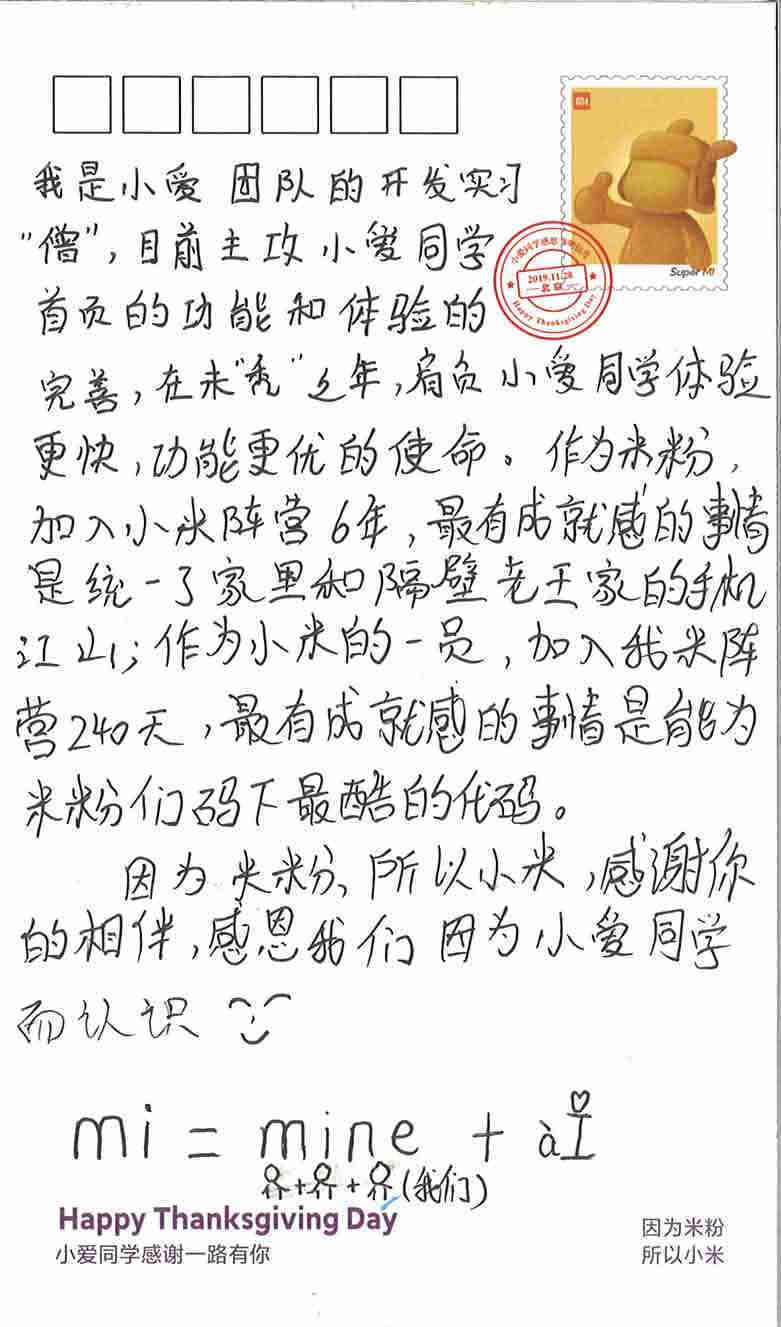 mi
Super Mi
小爱同学感恩
2019.11.28
北京
Happy Thanksgiving Day
我是小爱团队的开发实习
“僧”,目前主攻小爱同学
首页的功能和体验的
完善,在未“秃”之年,肩负小爱同学体验
更快,功能更优的使命。作为米粉,
加入小米阵营6年,最有成就感的事情
是统一了家里和隔壁老王家的手机
江山;作为小米的一员,加入我米阵
营240天,最有成就感的事情是能为
米粉们码下最酷的代码。
因为米粉、所以小米,感谢你
的相伴,感恩我们因为小爱同学
而认识
mi = mine + àI
(我们)
Happy Thanksgiving Day
小爱同学感谢一路有你
因为米粉
所以小米